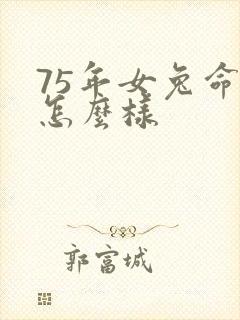 75年女兔命
怎麼樣
郭富城